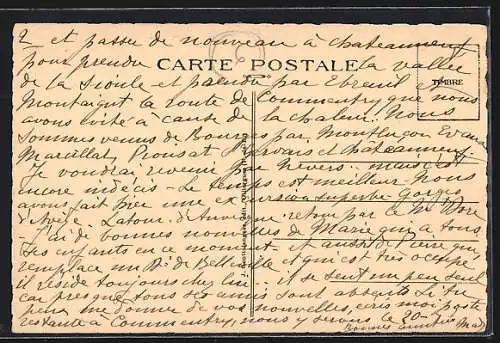 2 et passer de nouveau à Chateauneuf
pour prendre la vallée
CARTE POSTALE
de la Sioule et par Ebreuil et
TIMBRE
Montaigut la route de Commentry que nous
avons évité à cause de la chaleur. Nous
sommes venus de Bourges par Montluçon Evaux
Marcillat, Pionsat Gervais et Chateauneuf
Je voudrai revenir par Nevers mais c'est
encore indécis - le temps est meilleur. Nous
avons fait hier une excursion superbe Gorges
d'Avèze. Latour d'Auvergne retour par le Mt Dore
J'ai de bonnes nouvelles de Marie qui a tous
ses enfants en ce moment et aussi de Pierre qui
remplace un Dr de Belleville et qui est très occupé
il réside toujours chez lui il se sent un peu seul
car presque tous ses amis sont absents Si tu
peux me donner de vos nouvelles, écris moi poste
restante à Commentry, nous y serons le 20
Bonnes amitiés